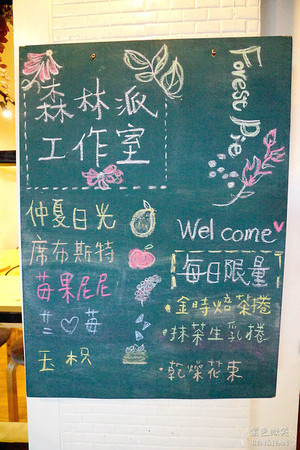 森林派
工作室
Forest Pie
仲夏日光
席布斯特
莓果尼尼
芒♡莓
玉枳
Welcome
每日限量
·金時焙茶捲
·抹茶生乳捲
·乾燥花束